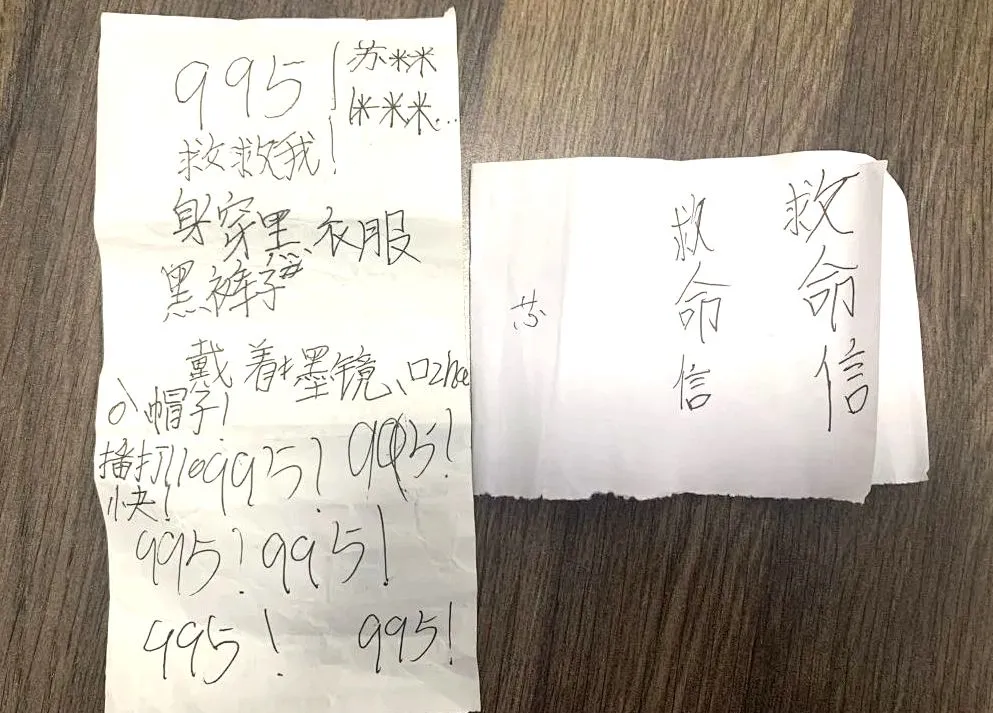 995！苏米米
米米米…
救救我！
身穿黑衣服
黑裤子
戴着墨镜、口zhao
帽子！
播打110995！995！
快！
995！995！
995！995！
救命信
救命信
苏